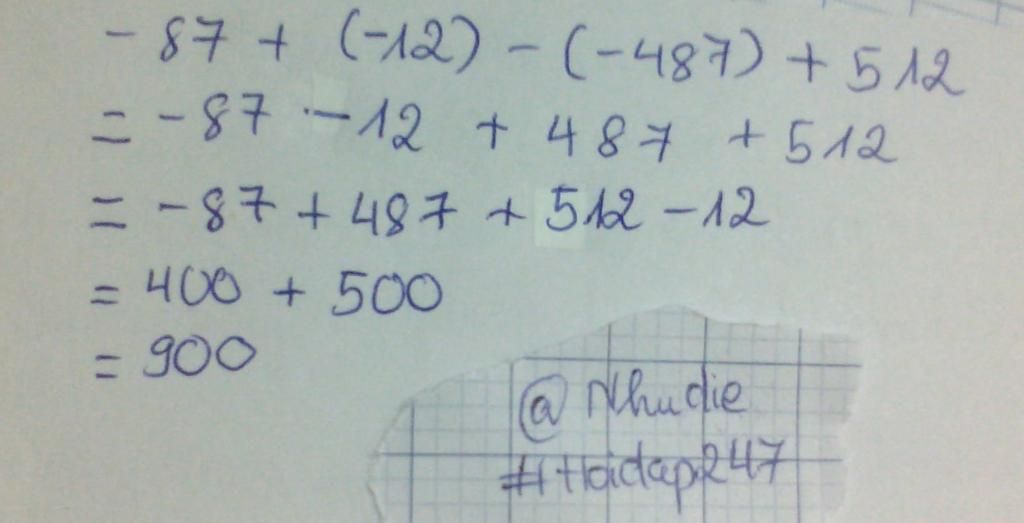 - 87 + (-12) - (-487) + 512
= - 87 - 12 + 487 + 512
= - 87 + 487 + 512 - 12
= 400 + 500
= 900
@ Nhudie
#Hoidap247